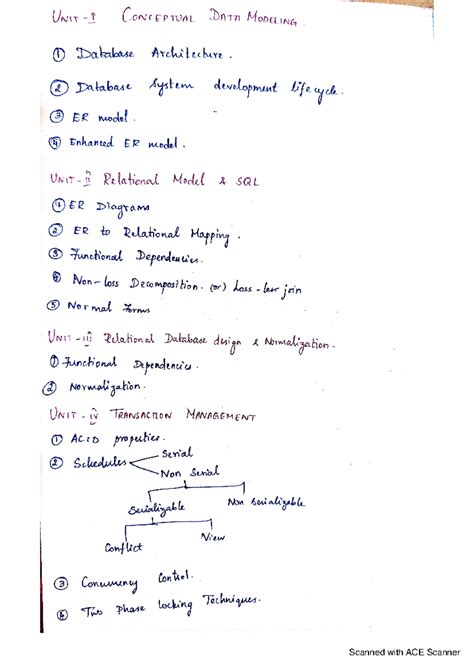 UNIT - I CONCEPTUAL DATA MODELING.
① Database Architecture.
② Database System development life cycle.
③ ER model.
④ Enhanced ER model.
UNIT - II Relational Model & SQL
① ER Diagrams
② ER to Relational Mapping.
③ Functional Dependencies.
④ Non-loss Decomposition. (or) Loss-less join
⑤ Normal Forms
UNIT - III Relational Database design & Normalization.
① Functional Dependencies.
② Normalization.
UNIT - IV TRANSACTION MANAGEMENT
① ACID properties.
② Schedules
Serial
Non Serial
Serializable Non Serializable
Conflict View
③ Concurrency Control.
④ Two phase locking Techniques.
Scanned with ACE Scanner